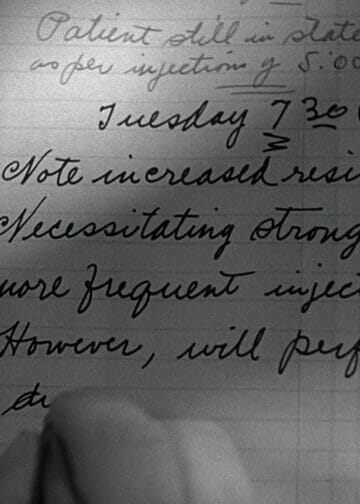 Patient still in state
as per injection g 5:00
Tuesday 7 30
Note increased resi
Necessitating strong
more frequent injec
However, will perf
du